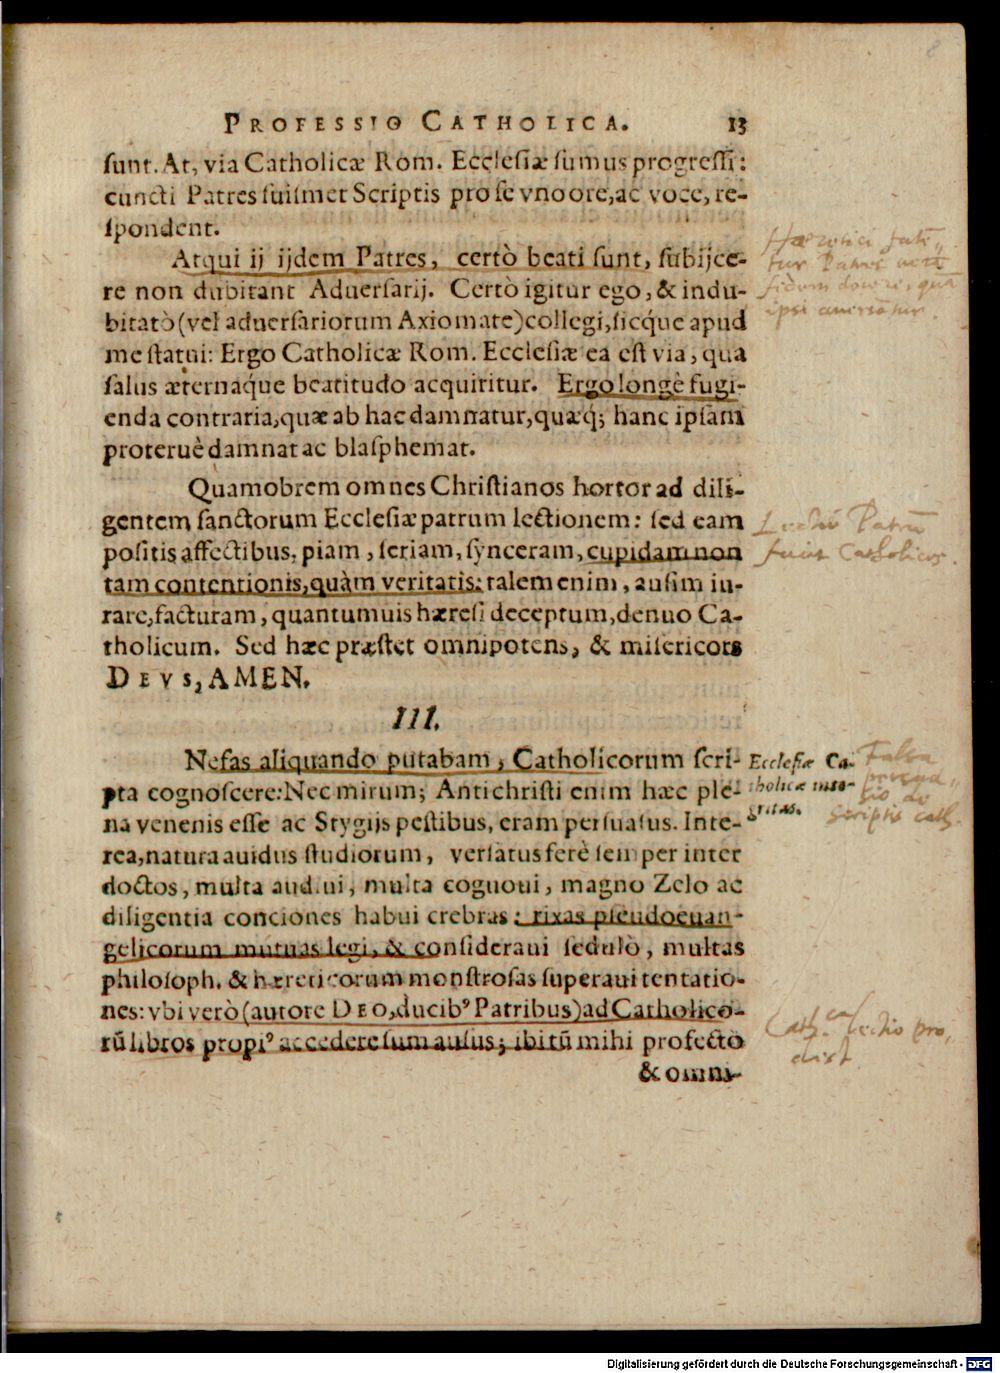 PROFESSIO CATHOLICA. 13
sunt. At, via Catholicæ Rom. Ecclesiæ sumus progressi:
cuncti Patres suismet Scriptis pro se vno ore, ac voce, re-
spondent.
Atqui ij ijdem Patres, certò beati sunt, subijce-
re non dubitant Aduersarij. Certò igitur ego, & indu-
bitatò (vel aduersariorum Axiomate) collegi, sicque apud
me statui: Ergo Catholicæ Rom. Ecclesiæ ea est via, qua
salus æternaque beatitudo acquiritur. Ergo longè fugi-
enda contraria, quæ ab hac damnatur, quæq; hanc ipsam
proteruè damnat ac blasphemat.
Quamobrem omnes Christianos hortor ad dili-
gentem sanctorum Ecclesiæ patrum lectionem: sed eam
positis affectibus, piam, seriam, synceram, cupidam non
tam contentionis, quàm veritatis: talem enim, ausim iu-
rare, facturam, quantumuis hæresi deceptum, denuo Ca-
tholicum. Sed hæc præstet omnipotens, & misericors
DEVS, AMEN.
III.
Nefas aliquando putabam, Catholicorum scri-
Ecclesiæ Ca-
pta cognoscere: Nec mirum; Antichristi enim hæc ple-
tholicæ inte-
na venenis esse ac Stygijs pestibus, eram persuasus. Inte-
gritas.
rea, natura auidus studiorum, versatus ferè semper inter
doctos, multa audiui, multa cognoui, magno Zelo ac
diligentia conciones habui crebras: rixas pseudoeuan-
gelicorum mutuas legi, & consideraui sedulò, multas
philosoph. & hæreticorum monstrosas superaui tentatio-
nes: vbi verò (autore DEO, ducibꝰ Patribus) ad Catholico-
rũ libros propiꝰ accedere sum ausus; ibi tũ mihi profectò
& omni-
Lectio Patrũ
facit Catholicos.
Falsa
persua
sio de
scriptis cath.
Digitalisierung gefördert durch die Deutsche Forschungsgemeinschaft - DFG